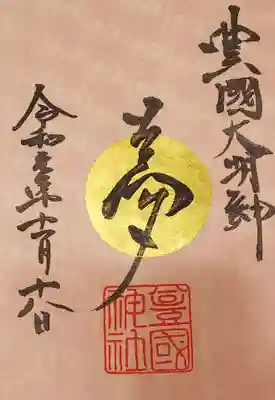 豊國大明神
夢
豊國
神社
令和元年十一月十八日